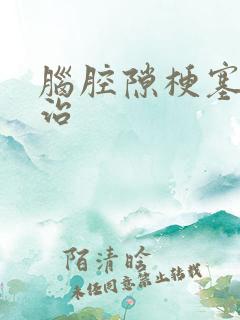 腦腔隙梗塞
治
陌清晗
未经同意禁止转载